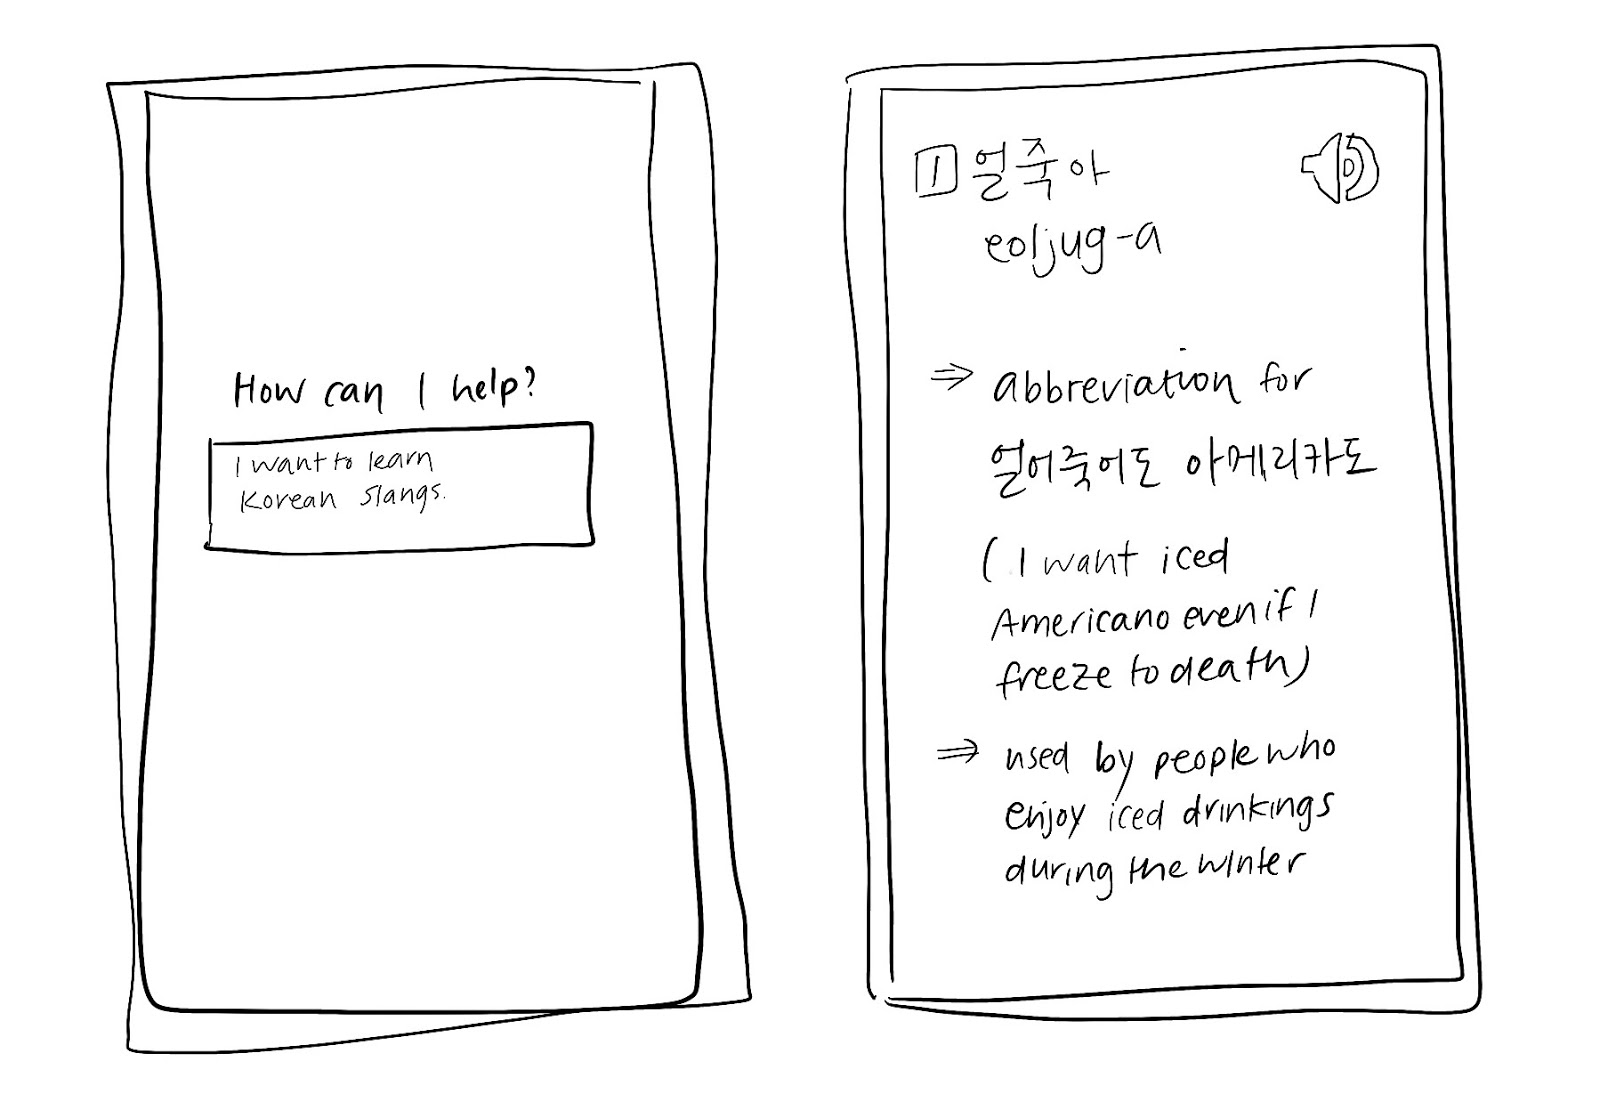 How can I help?
I want to learn
Korean slangs.
1 얼죽아
eoljug-a
⇒ abbreviation for
얼어죽어도 아메리카도
( I want iced
Americano even if I
freeze to death)
⇒ used by people who
enjoy iced drinkings
during the winter